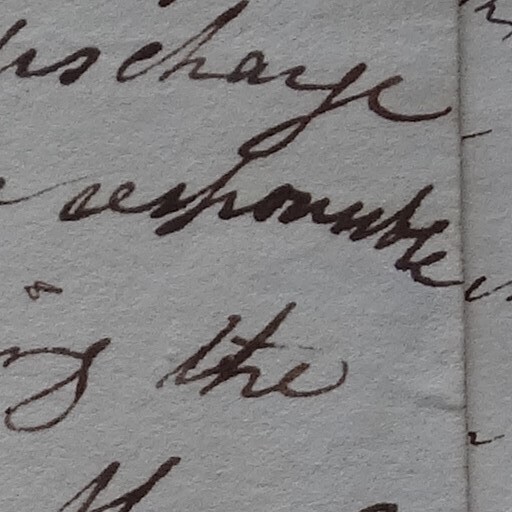 discharge
responsible
the